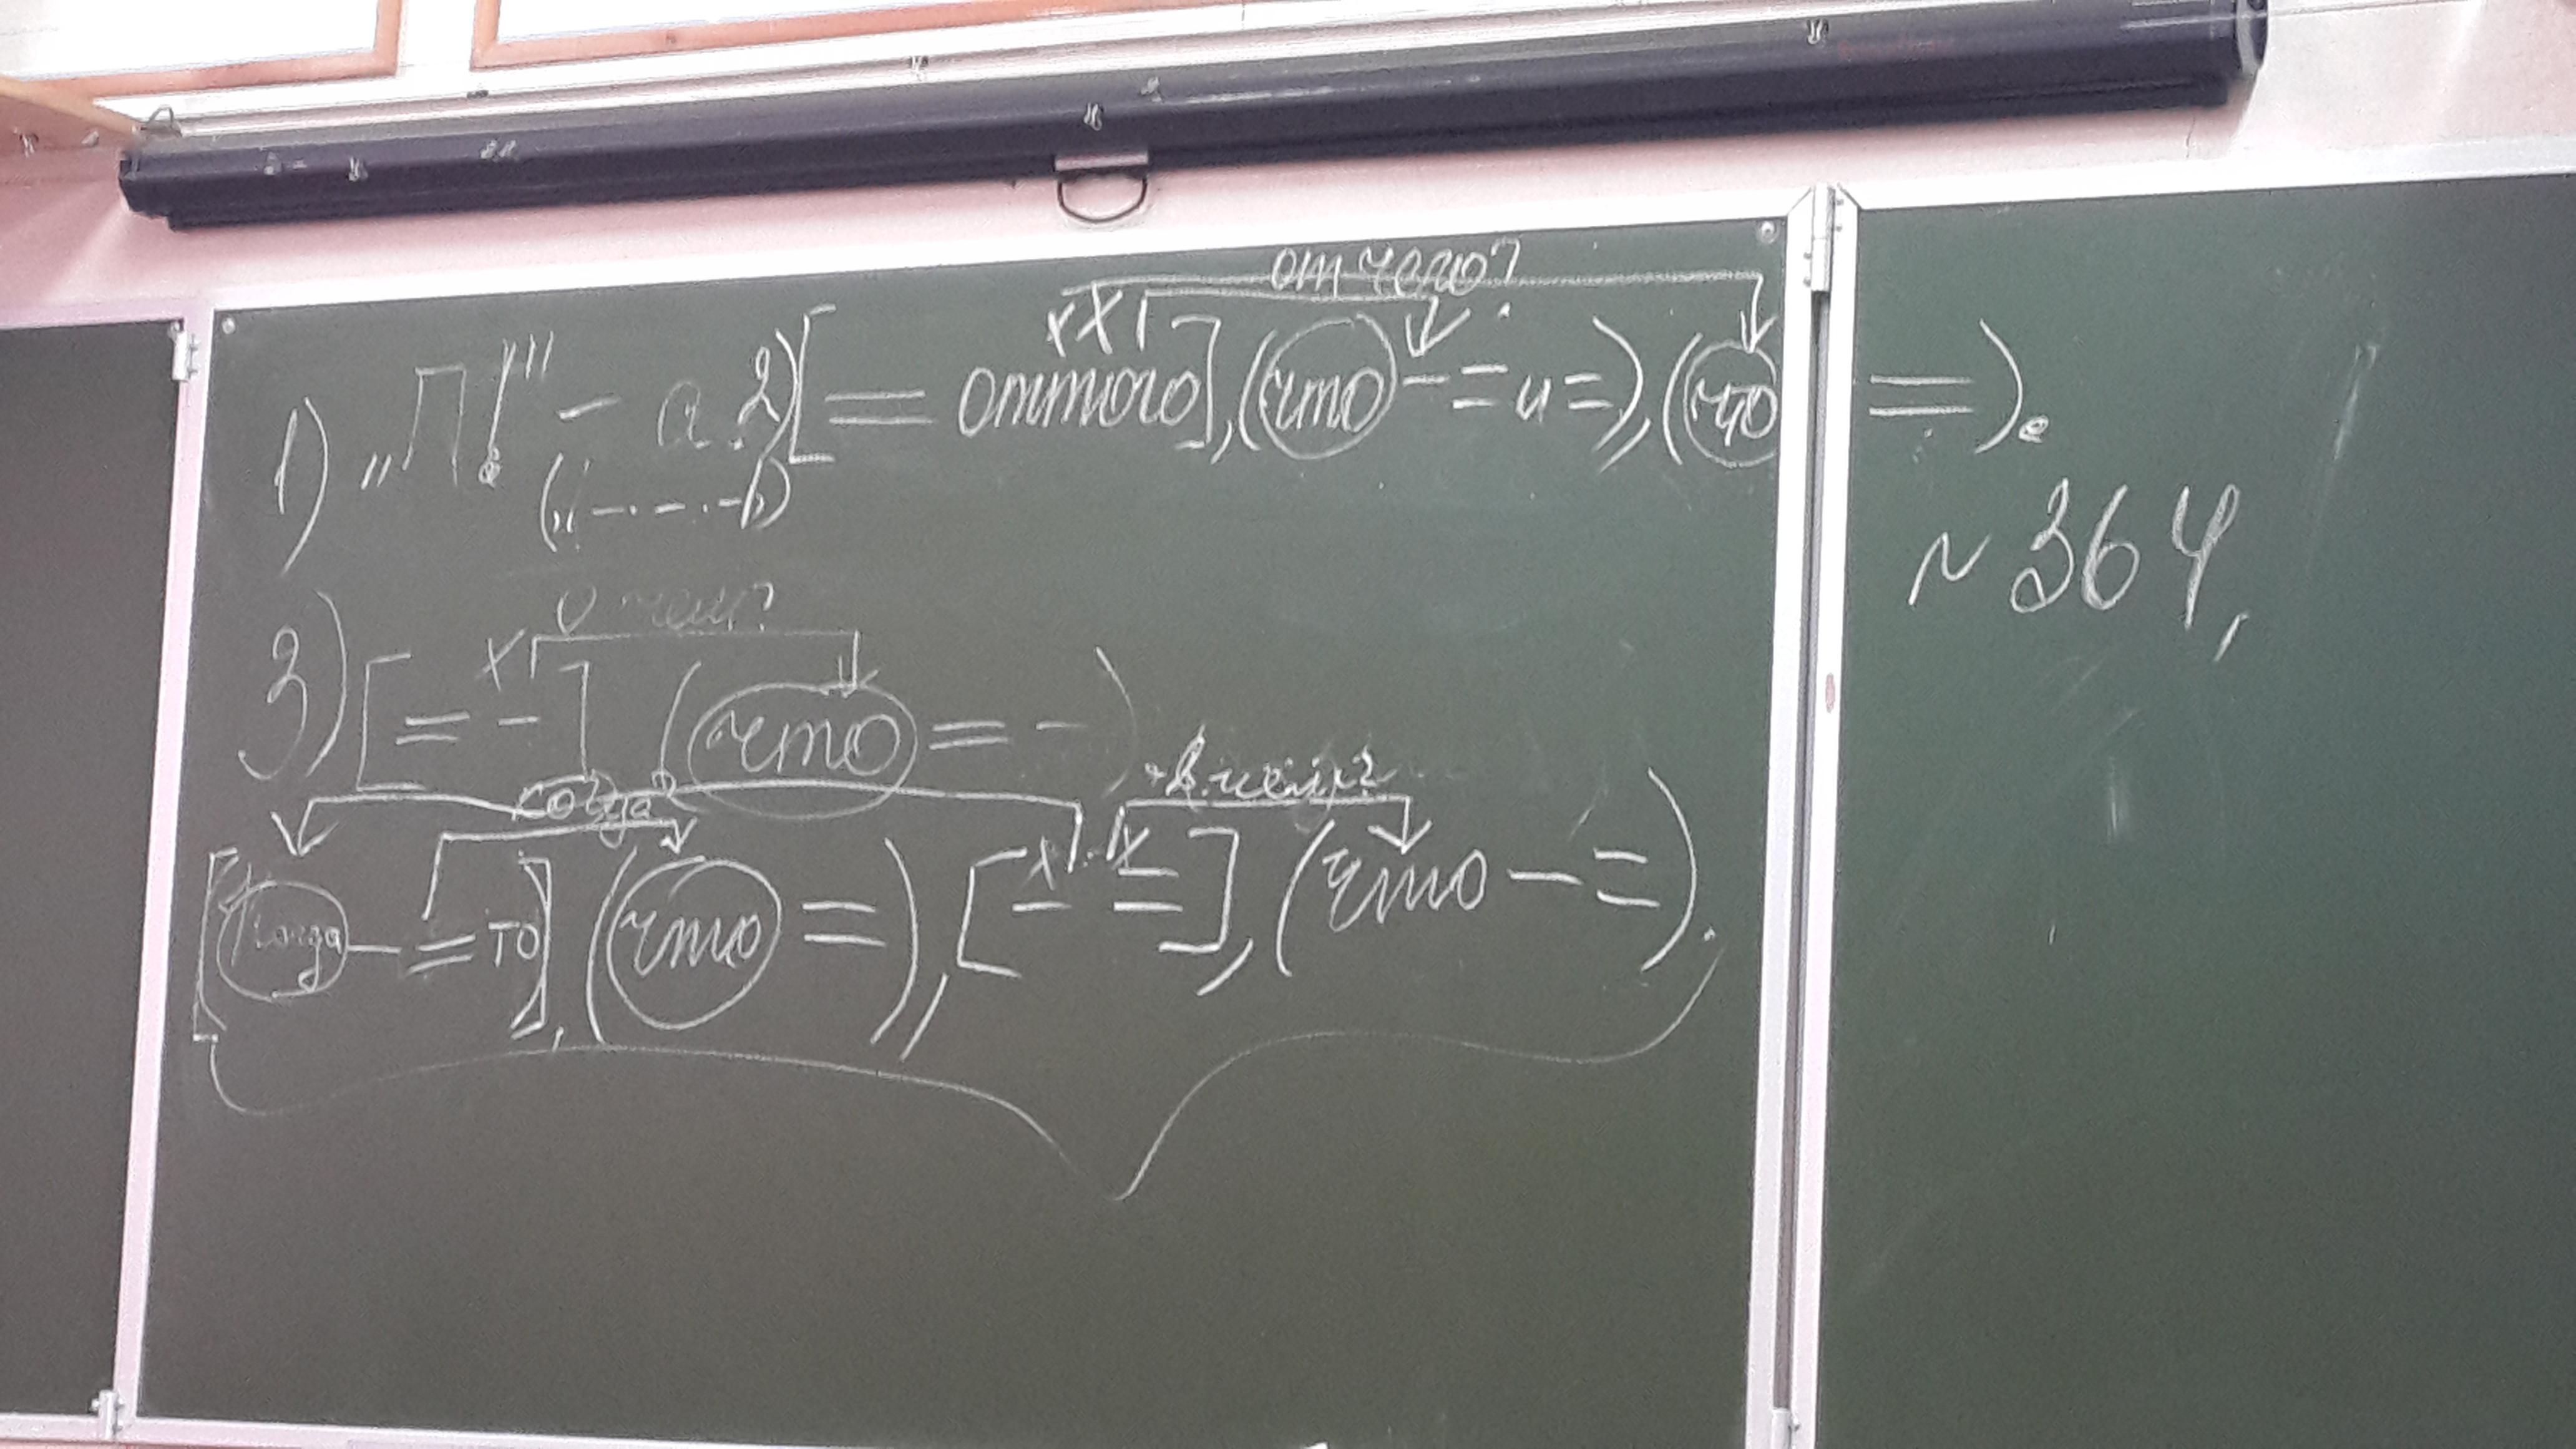 от чего?
х х
1) „П!" - а. 2) [ = оттого], (что - = и =), (что =).
№ 364,
о чём?
х
3) [= -] (что = -)
когда? в чём?
х х
[когда - = то], (что =), [- =], (что - =).